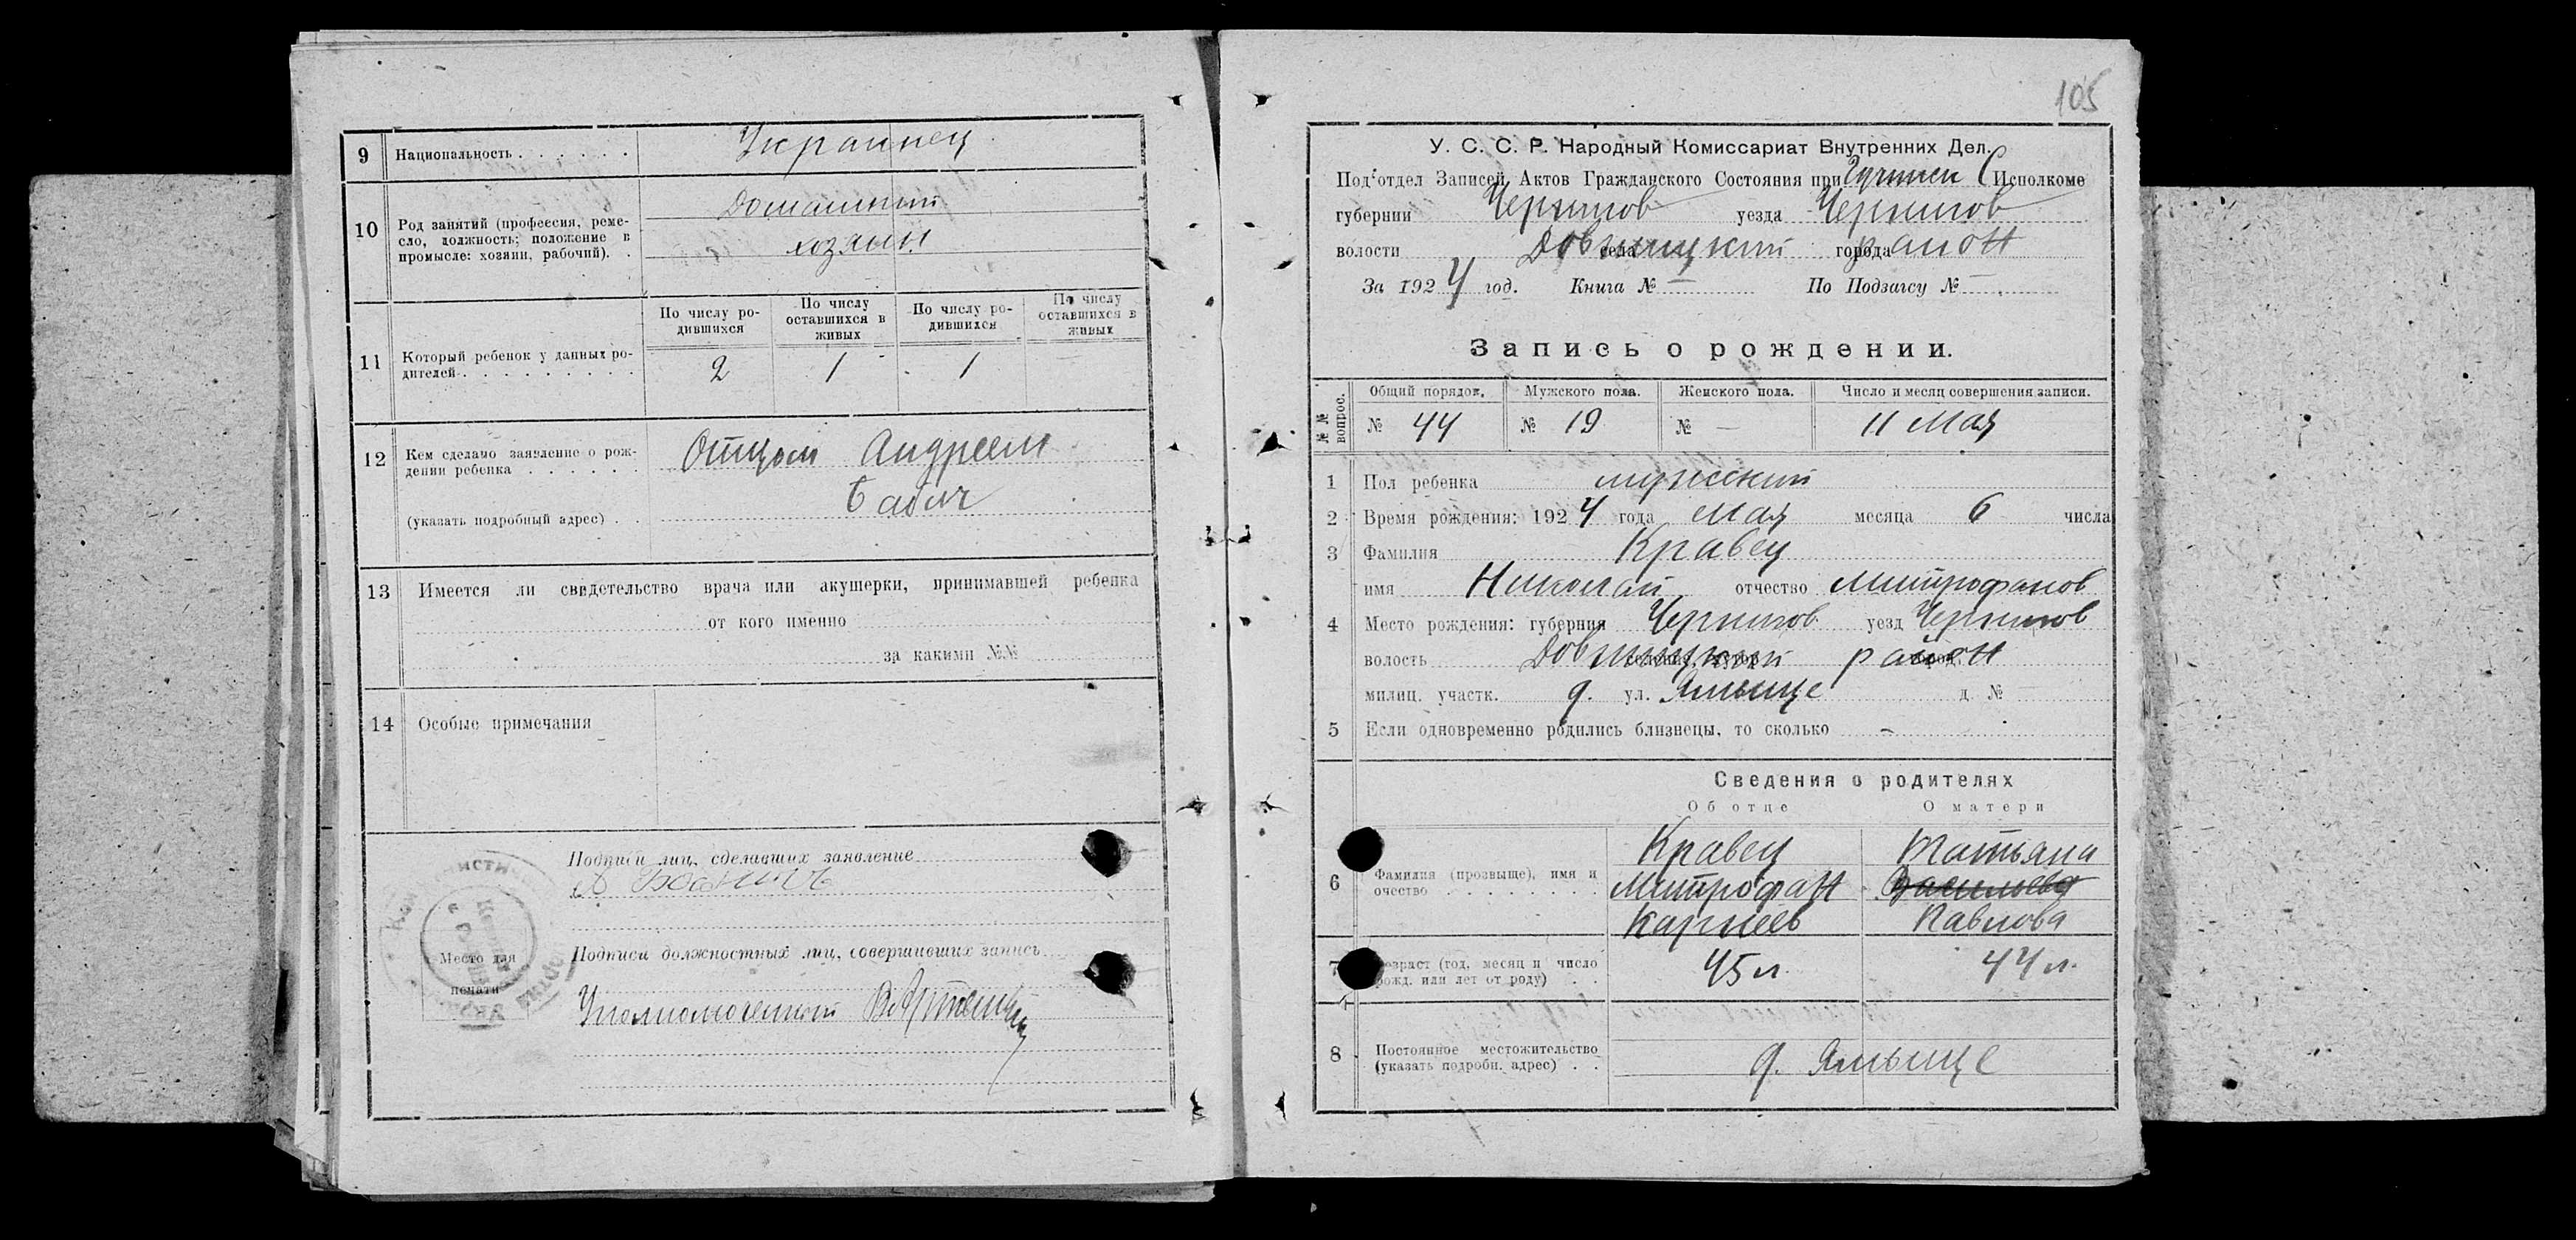 9 Национальность . . . . . . Украинец
10 Род занятий (профессия, реме-
сло, должность; положение в
промысле: хозяин, рабочий). .
Домашний
хозяин
По числу ро-
дившихся
По числу
оставшихся в
живых
По числу ро-
дившихся
По числу
оставшихся в
живых
11 Который ребенок у данных ро-
дителей . . . . . . . . .
2 1 1
12 Кем сделано заявление о рож-
дении ребенка . . . . . .
Отцом Андреем
Бабич
(указать подробный адрес) . .
13 Имеется ли свидетельство врача или акушерки, принимавшей ребенка
от кого именно
за какими №№
14 Особые примечания
Подписи лиц, сделавших заявление
Подписи должностных лиц, совершивших запись
Место для
печати
Уполномоченный
105
У. С. С. Р. Народный Комиссариат Внутренних Дел.
Под'отдел Записей Актов Гражданского Состояния при Исполкоме
губернии Чернигов уезда Чернигов
волости села города район
За 1924 год. Книга № — По Подзагсу № —
Запись о рождении.
№№ вопрос.
Общий порядок. Мужского пола. Женского пола. Число и месяц совершения записи.
№ 44 № 19 № — 11 Мая
1 Пол ребенка мужский
2 Время рождения: 1924 года Мая месяца 6 числа
3 Фамилия Кравец
имя Николай отчество Митрофанов
4 Место рождения: губерния Чернигов уезд Чернигов
волость район
милиц. участк. д. ул. Ямыще д. №
5 Если одновременно родились близнецы, то сколько –
Сведения о родителях
Об отце О матери
6 Фамилия (прозвыще), имя и
очество . . . . . . . . .
Кравец
Митрофан
Карнеев
Татьяна
Васильева
Павлова
7 Возраст (год, месяц и число
рожд. или лет от роду) . .
45 л. 44 л.
8 Постоянное местожительство
(указать подробн. адрес) . .
д. Ямыще